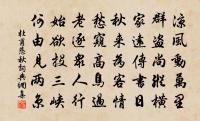 涼風動萬里
群盜尚縱橫
家遠傳書日
秋來為客情
愁窺高鳥過
老逐衆人行
始欲投三峽
何由見兩京
杜甫悲秋詞